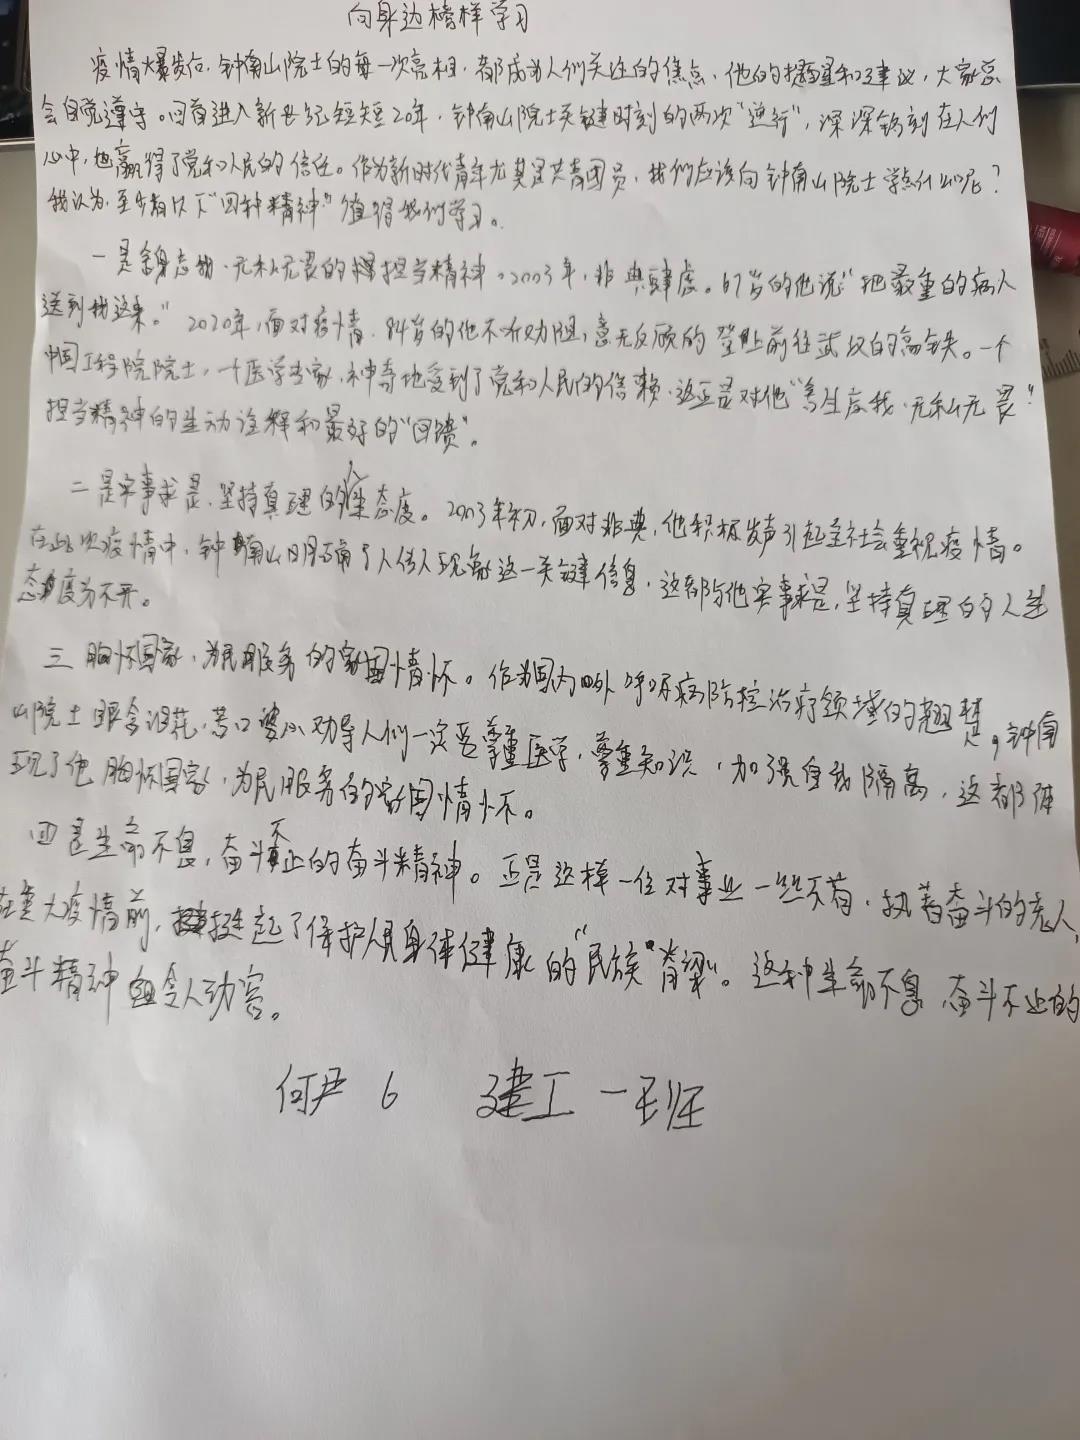 向身边榜样学习
疫情爆发后,钟南山院士的每一次亮相,都成为人们关注的焦点,他的提醒和建议,大家总
会自觉遵守。回首进入新世纪短短20年,钟南山院士关键时刻的两次"逆行",深深镌刻在人们
心中,也赢得了党和人民的信任。作为新时代青年尤其是共青团员,我们应该向钟南山院士学点什么呢?
我认为,至少有以下"四种精神"值得我们学习。
一是舍身忘我、无私无畏的担当精神。2003年,非典肆虐。67岁的他说"把最重的病人
送到我这来。"2020年,面对疫情,84岁的他不听劝阻,意无反顾的登上前往武汉的高铁。一个
中国工程院院士,一个医学专家,神奇地受到了党和人民的信赖,这正是对他"舍生忘我、无私无畏"
担当精神的生动诠释和最好的"回馈"。
二是实事求是、坚持真理的人生态度。2003年初,面对非典,他积极发声引起全社会重视疫情。
在此次疫情中,钟南山明确了人传人现象这一关键信息,这都与他实事求是,坚持真理的人生
态度分不开。
三胸怀国家、为民服务的家国情怀。作为国内外呼吸病防控治疗领域的翘楚,钟南
山院士眼含泪花,苦口婆心劝导人们一定要尊重医学,尊重知识,加强自我隔离,这都体
现了他胸怀国家,为民服务的家国情怀。
四是生命不息,奋斗不止的奋斗精神。正是这样一位对事业一丝不苟,执着奋斗的老人,
在重大疫情前,挺起了保护人民身体健康的"民族"脊梁"。这种生命不息,奋斗不止的
奋斗精神 令人动容。
何尹 6 建工一班